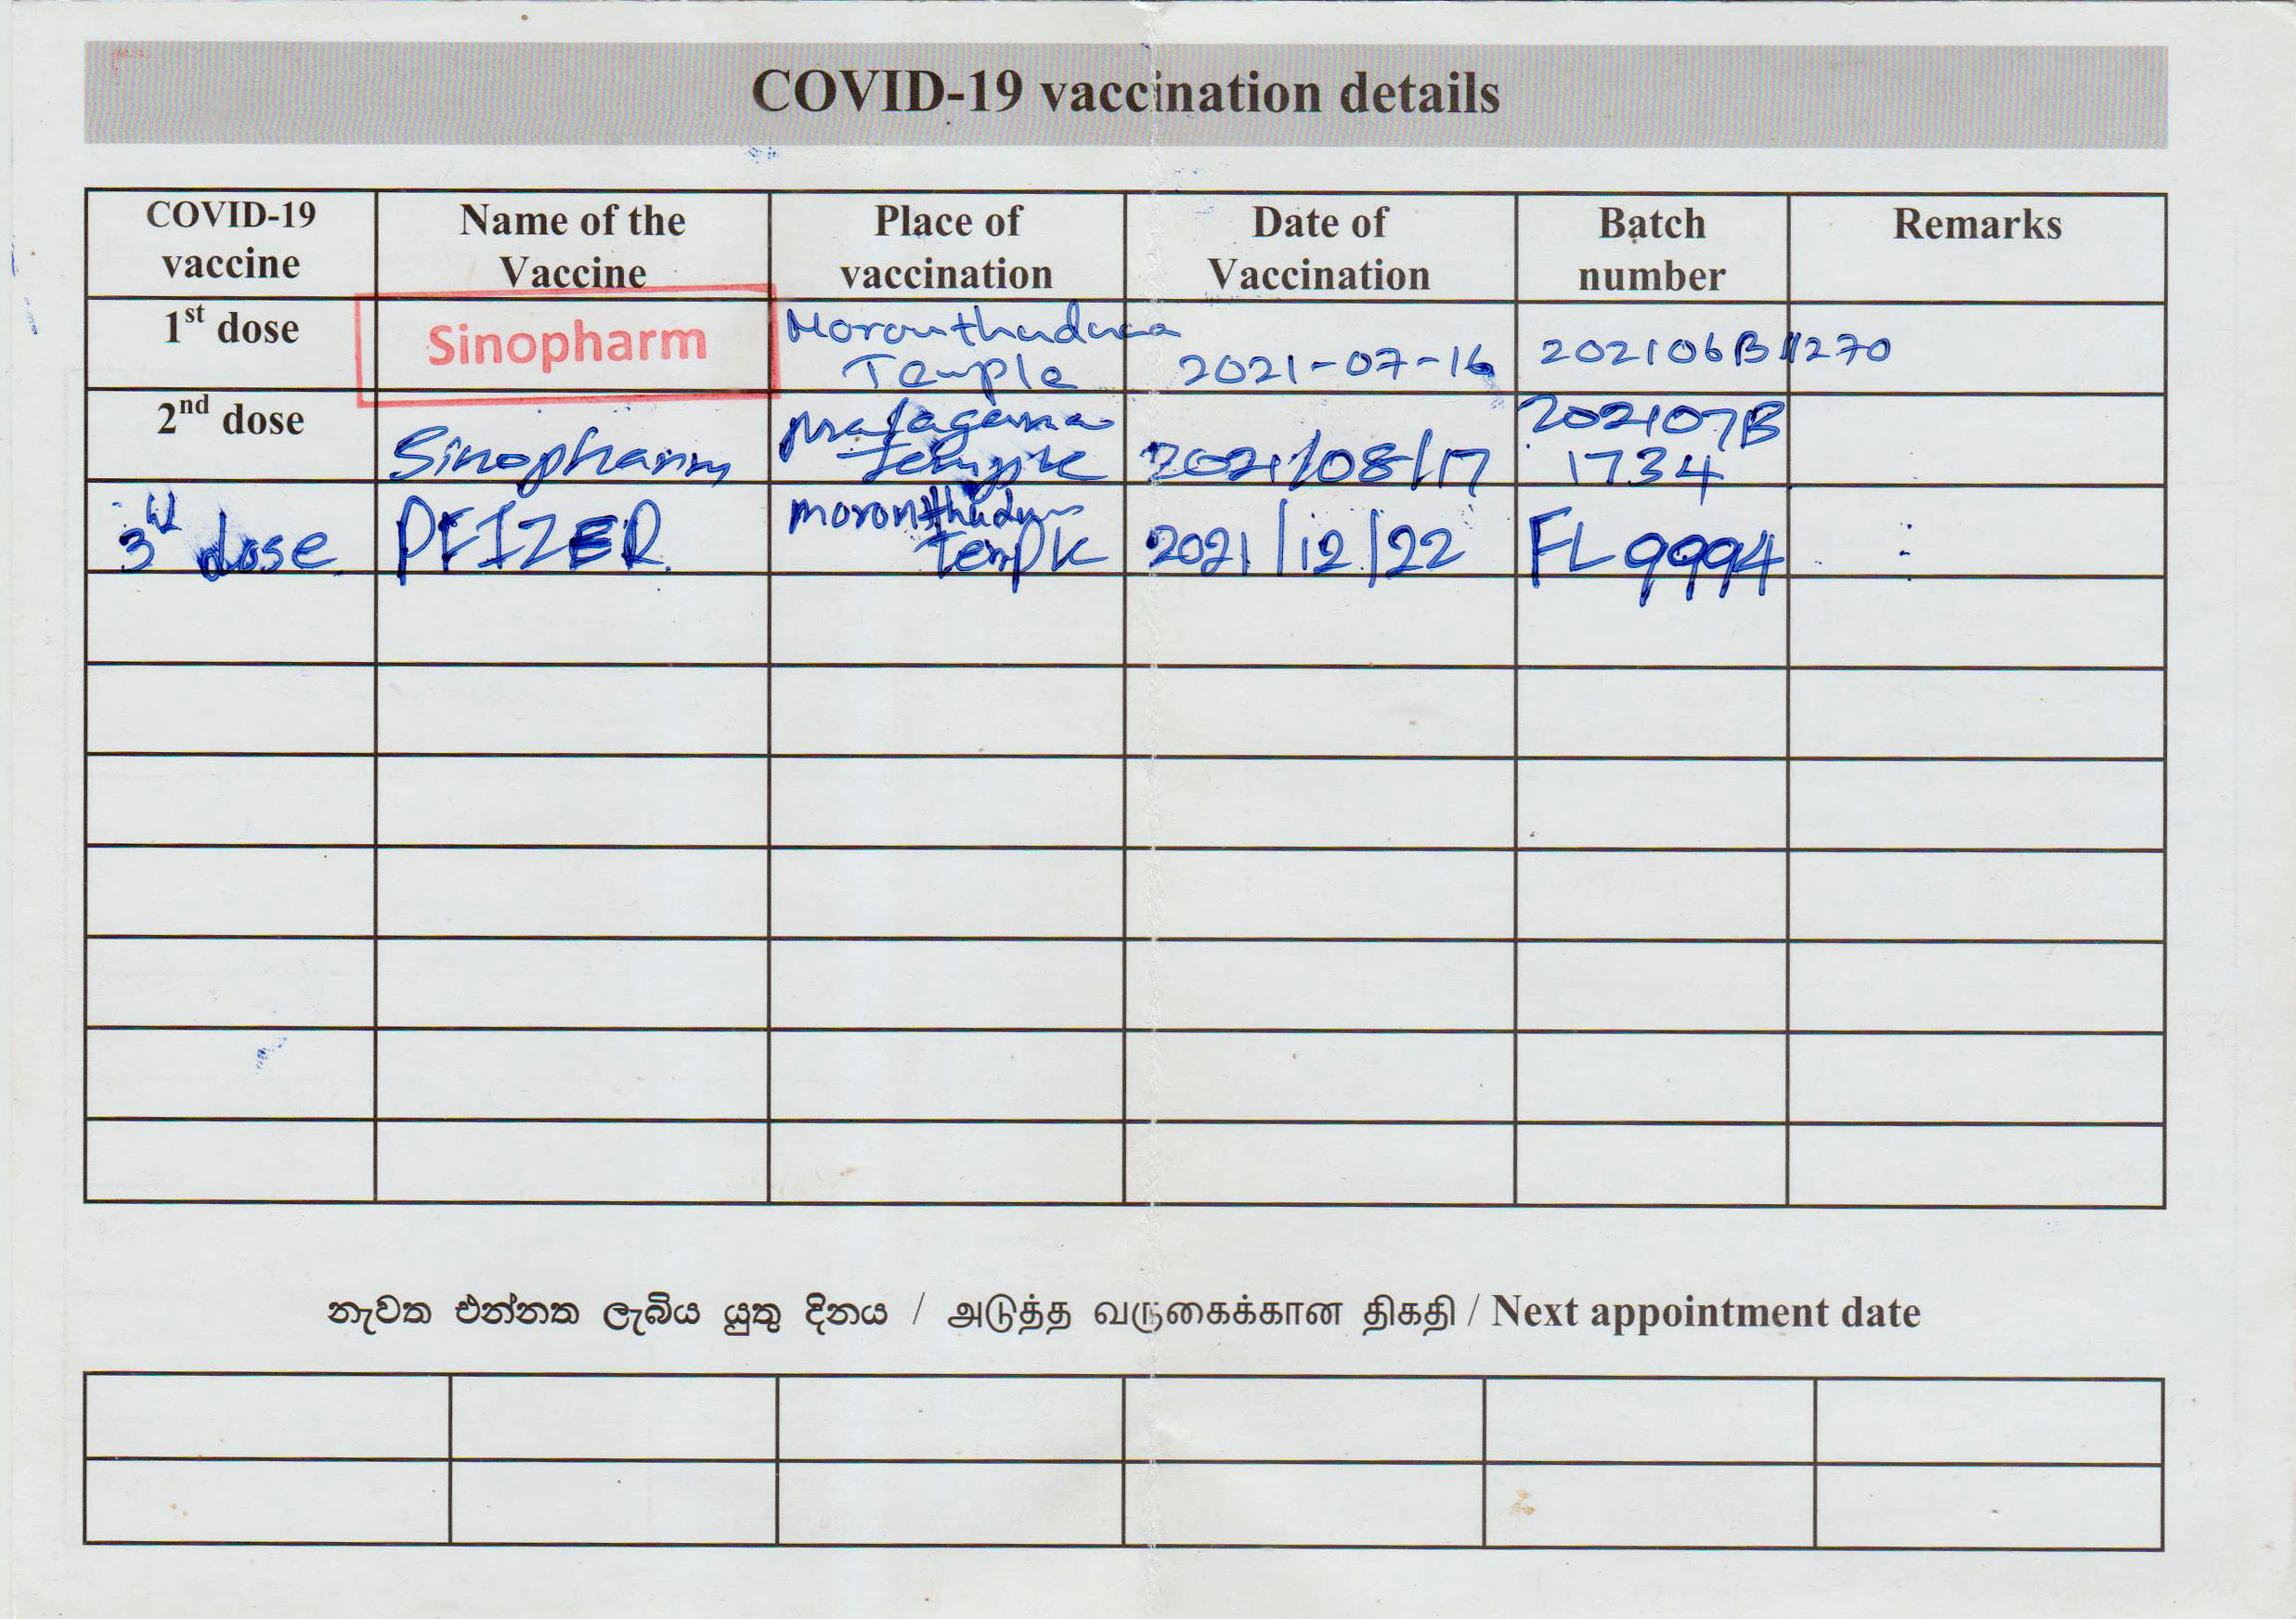 COVID-19 vaccination details
COVID-19 vaccine Name of the Vaccine Place of vaccination Date of Vaccination Batch number Remarks
1st dose Sinopharm Temple 2021-07-16 202106B 1270
2nd dose Sinopharm Temple 2021/08/17 202107B 1734
3rd dose PFIZER Temple 2021/12/22 FL9994
නැවත එන්නත ලැබිය යුතු දිනය / அடுத்த வருகைக்கான திகதி / Next appointment date